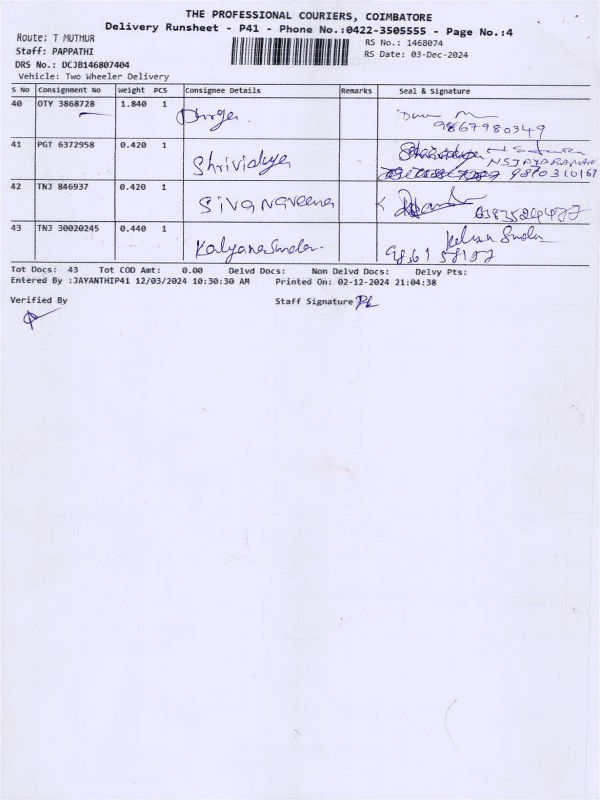 THE PROFESSIONAL COURIERS, COIMBATORE
Delivery Runsheet - P41 - Phone No.:0422-3505555 - Page No.:4
Route: T MUTHUR
RS No.: 1468074
Staff: PAPPATHI
RS Date: 03-Dec-2024
DRS No.: DCJB146807404
Vehicle: Two Wheeler Delivery
S No Consignment No Weight PCS Consignee Details Remarks Seal & Signature
40 OTY 3868728 1.840 1
9867980349
41 PGT 6372958 0.420 1 Shrividya
NSJAYARAMAN
9870310167
42 TNJ 846937 0.420 1 Siva Naveena
43 TNJ 30020245 0.440 1 Kalyana Sundar
Tot Docs: 43 Tot COD Amt: 0.00 Delvd Docs: Non Delvd Docs: Delvy Pts:
Entered By :JAYANTHIP41 12/03/2024 10:30:30 AM Printed On: 02-12-2024 21:04:38
Verified By Staff Signature